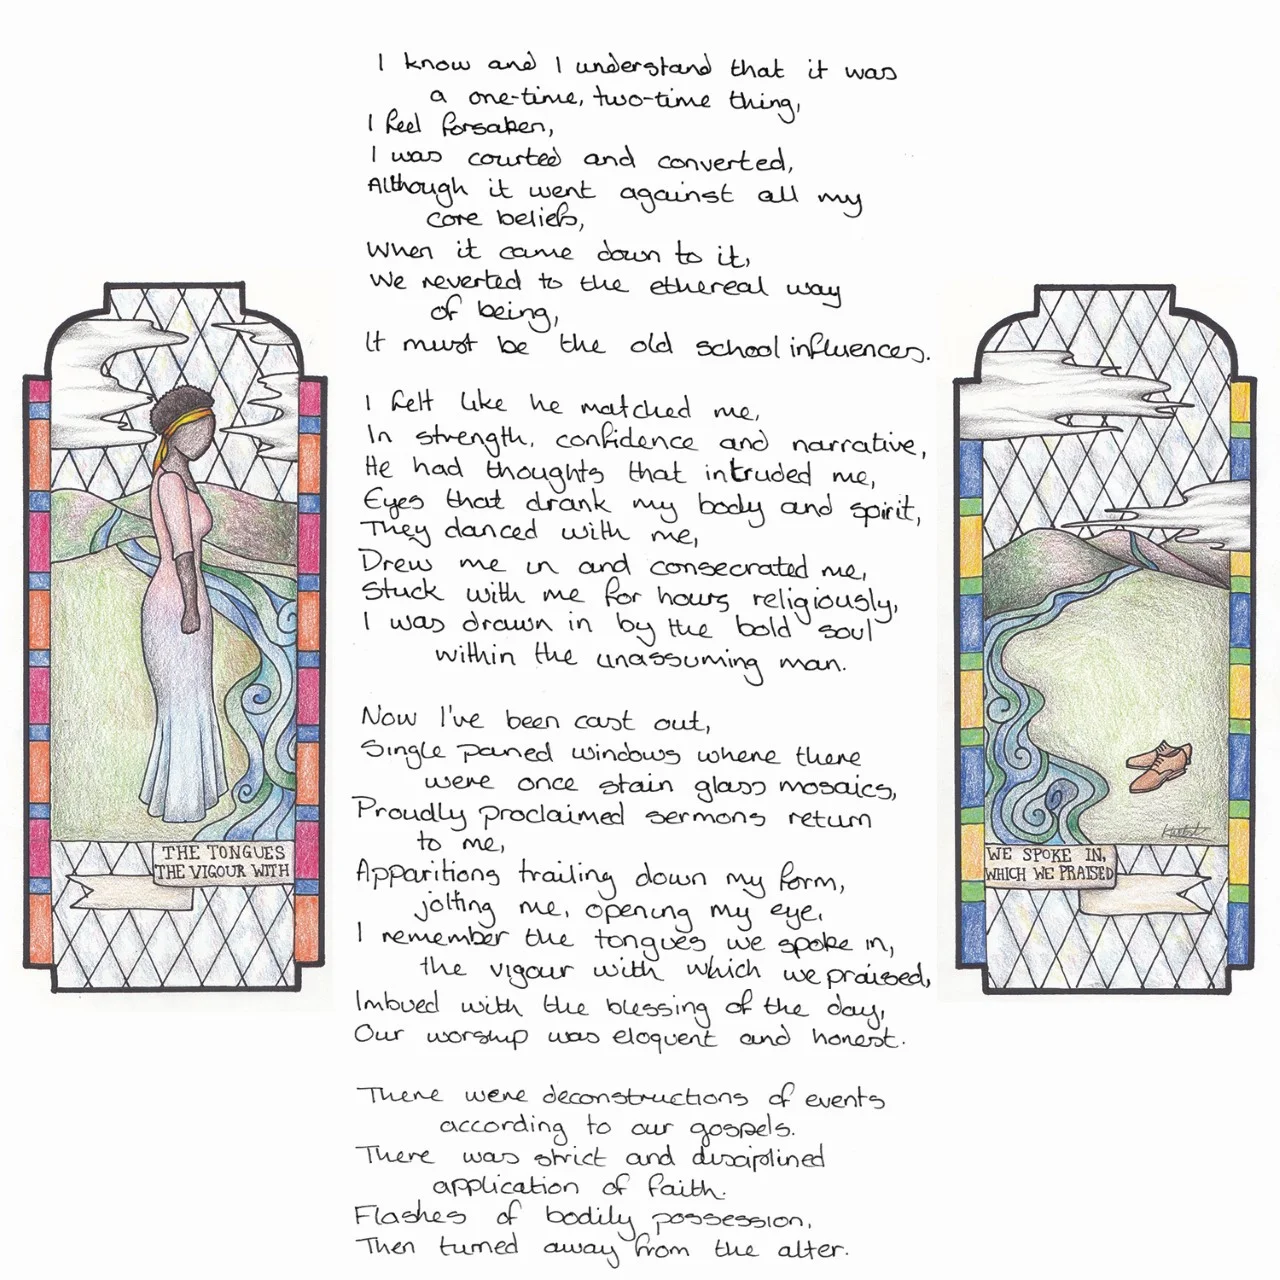 I know and I understand that it was
a one-time, two-time thing,
I feel forsaken,
I was courted and converted,
Although it went against all my
core beliefs,
When it came down to it,
We reverted to the ethereal way
of being,
It must be the old school influences.
I felt like he matched me,
In strength, confidence and narrative,
He had thoughts that intruded me,
Eyes that drank my body and spirit,
They danced with me,
Drew me in and consecrated me,
Stuck with me for hours religiously,
I was drawn in by the bold soul
within the unassuming man.
Now I've been cast out,
Single paned windows where there
were once stain glass mosaics,
Proudly proclaimed sermons return
to me,
Apparitions trailing down my form,
jolting me, opening my eye,
I remember the tongues we spoke in,
the vigour with which we praised,
Imbued with the blessing of the day,
Our worship was eloquent and honest.
There were deconstructions of events
according to our gospels.
There was strict and disciplined
application of faith.
Flashes of bodily possession,
Then turned away from the alter.
THE TONGUES
THE VIGOUR WITH
WE SPOKE IN,
WHICH WE PRAISED